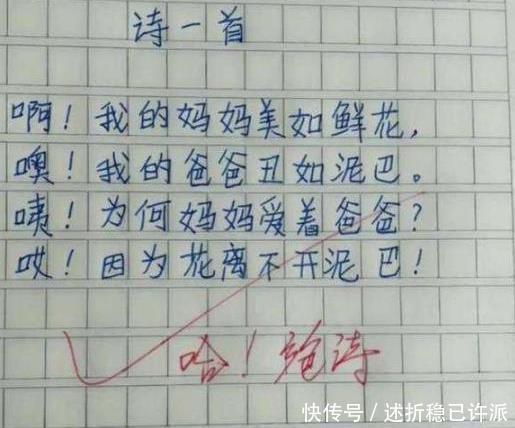 诗一首
啊！我的妈妈美如鲜花，
噢！我的爸爸丑如泥巴。
咦！为何妈妈爱着爸爸？
哎！因为花离不开泥巴！
哈！绝诗
快传号／述折稳已许派